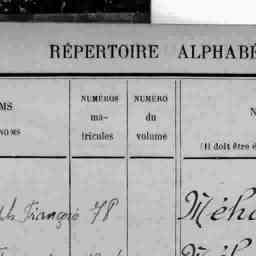 RÉPERTOIRE ALPHABÉ
MS
NOMS
NUMÉROS
ma-
tricules
NUMÉRO
du
volume
N
(Il doit être é
François 78 Méha